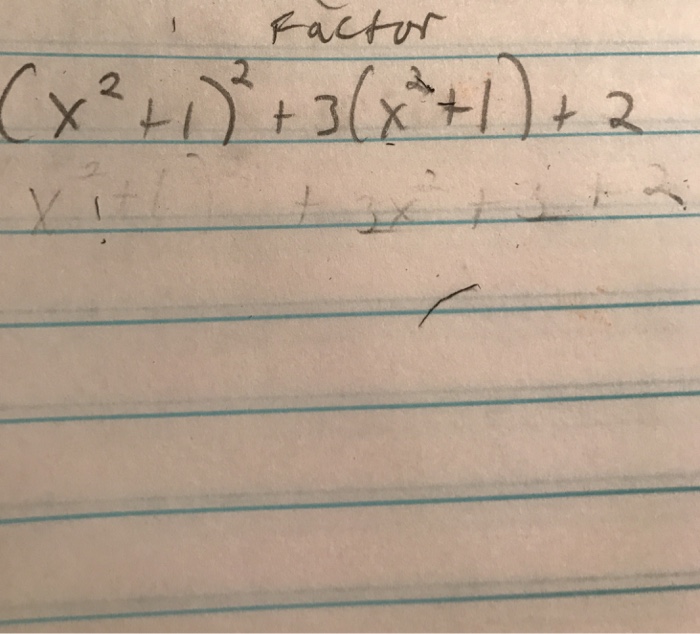 Factor
(x²+1)² + 3(x²+1) + 2
x² + 1 + 3x² + 3 + 2